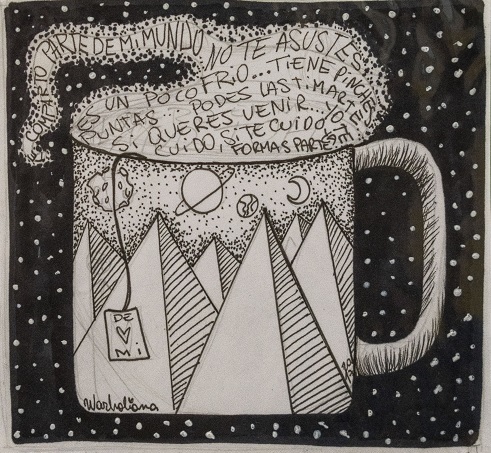 PARTE DE MI MUNDO
NO TE ASUSTES
ES UN POCO FRIO... TIENE PINCHES
PUNTAS... PODES LASTIMARTE
SI QUERES VENIR... YO TE
CUIDO, SI TE CUIDO
FORMAS PARTE
DE
Mi
Warholiana